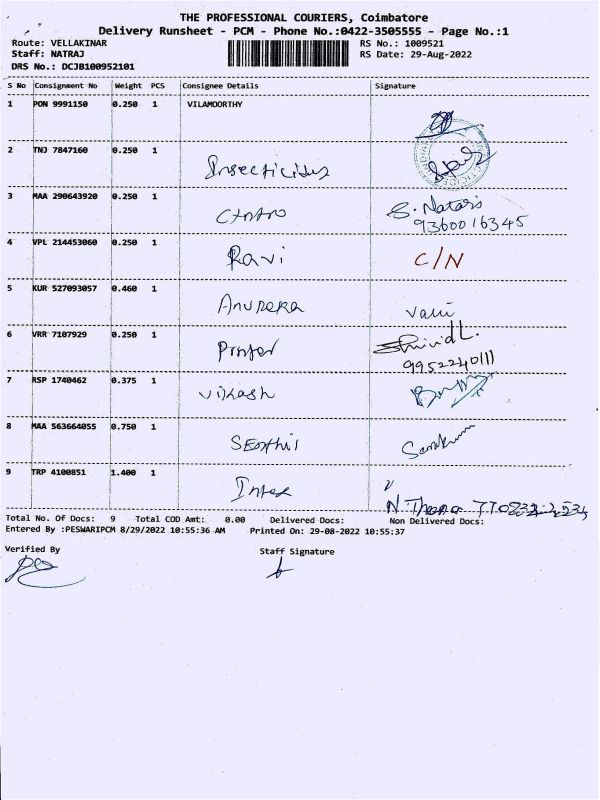 THE PROFESSIONAL COURIERS, Coimbatore
Delivery Runsheet - PCM - Phone No.:0422-3505555 - Page No.:1
Route: VELLAKINAR RS No.: 1009521
Staff: NATRAJ RS Date: 29-Aug-2022
DRS No.: DCJB100952101
S No Consignment No Weight PCS Consignee Details Signature
1 PON 9991150 0.250 1 VILAMOORTHY
2 TNJ 7847160 0.250 1 Insecticides
3 MAA 290643920 0.250 1 S. Nataraj
9360016345
4 VPL 214453060 0.250 1 Ravi C/N
5 KUR 527093057 0.460 1 Valli
6 VRR 7107929 0.250 1
9952240111
7 RSP 1740462 0.375 1 Vikash
8 MAA 563664055 0.750 1 Senthil
9 TRP 4100851 1.400 1
Total No. Of Docs: 9 Total COD Amt: 0.00 Delivered Docs: Non Delivered Docs:
Entered By :PESWARIPCM 8/29/2022 10:55:36 AM Printed On: 29-08-2022 10:55:37
Verified By Staff Signature